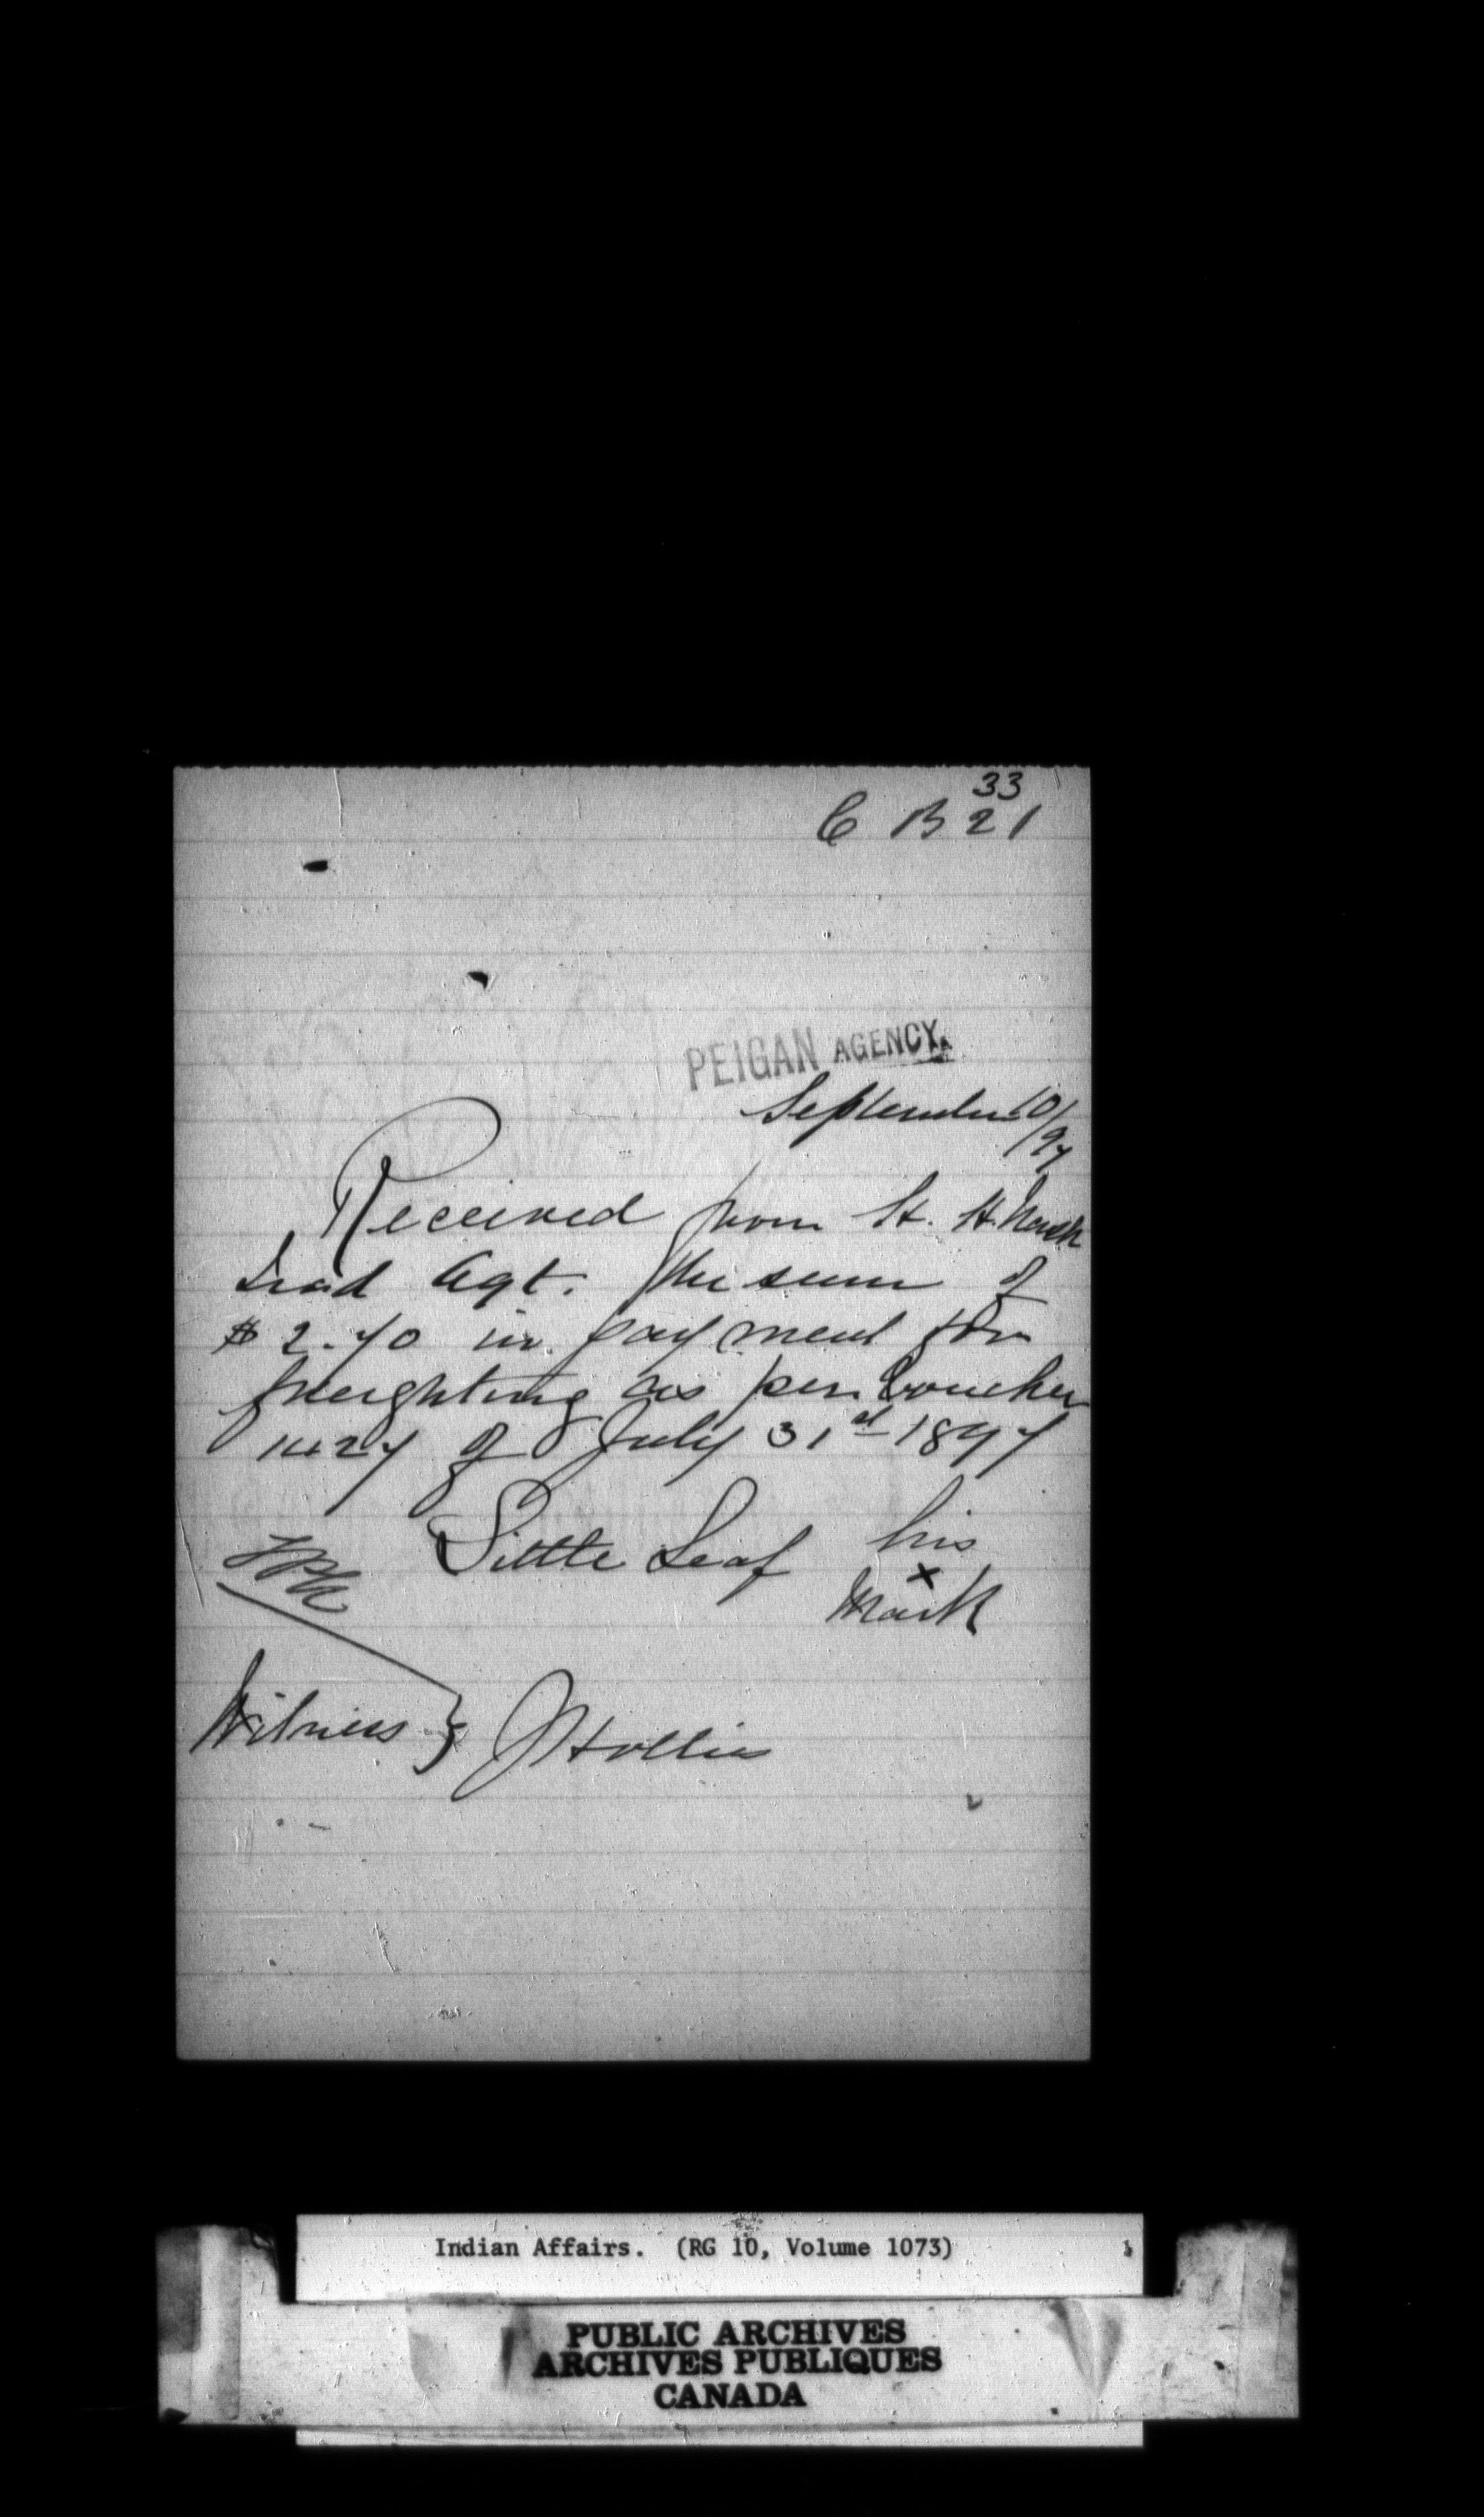 33
C B 21
PEIGAN AGENCY.
September 10/97
Received from H. H. Nash
Ind Agt. the sum of
$ 2.70 in payment for
freighting as per Voucher
1427 of July 31st 1897
Little Leaf his
x
mark
Witness } J Hollies
Indian Affairs. (RG 10, Volume 1073)
PUBLIC ARCHIVES
ARCHIVES PUBLIQUES
CANADA